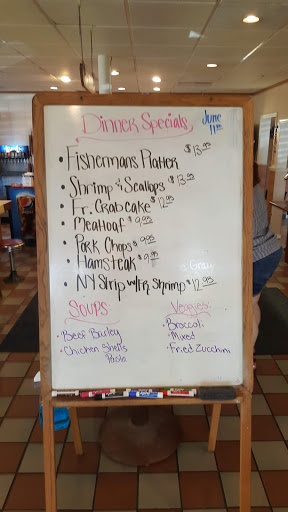 Dinner Specials
June 11th
• Fishermans Platter $13.95
• Shrimp & Scallops $13.95
• Fr. Crabcake $12.95
• Meatloaf $9.95
• Pork Chops $9.95
• Hamsteak $9.95
• NY Strip w/Fr Shrimp $12.95
Soups:
• Beef Barley
• Chicken Shells
Pasta
Veggies:
• Broccoli
• Mixed
• Fried Zucchini